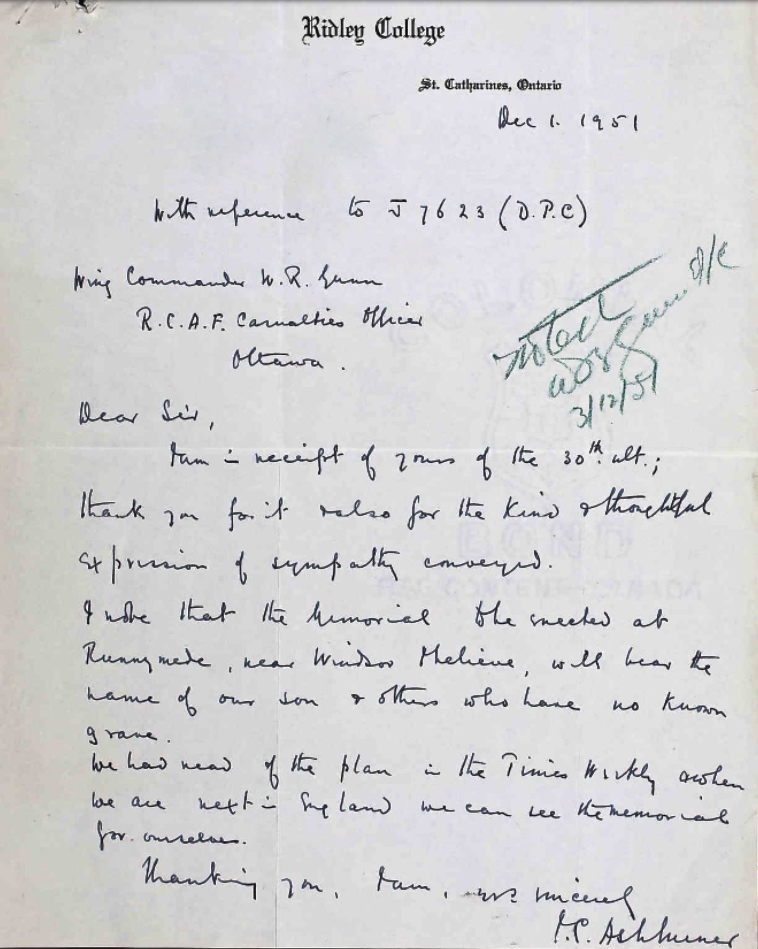 Ridley College
St. Catharines, Ontario
Dec 1. 1951
With reference to J 7623 (D.P.C)
Wing Commander W. R. Gunn
R.C.A.F. Casualties Officer
Ottawa.
Noted
W R Gunn
3/12/51
Dear Sir,
I am in receipt of yours of the 30th. ult.;
thank you for it & also for the kind & thoughtful
expression of sympathy conveyed.
I note that the Memorial to be erected at
Runnymede, near Windsor I believe, will bear the
name of our son & others who have no known
grave.
We had read of the plan in the Times Weekly & when
we are next in England we can see the memorial
for ourselves.
Thanking you, I am, yrs sincerely
Ashburner